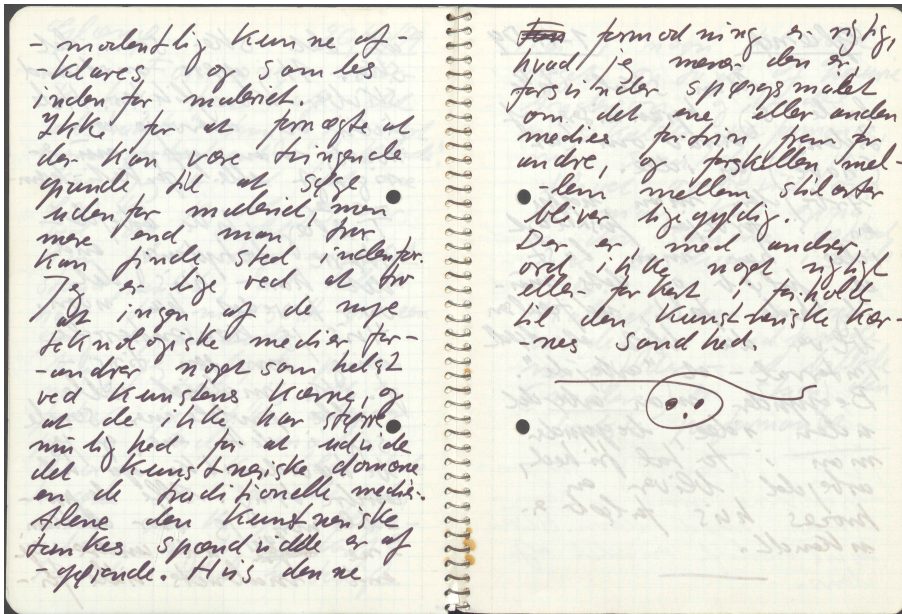 - modentlig kunne af-
- klares, og som les
inden for maleriet.
Ikke for at fornægte at
der kan være tvingende
grunde til at søge
uden for maleriet, men
mere end man tror
kan finde sted indenfor.
Jeg er lige ved at tro
at ingen af de nye
teknologiske medier for-
- andrer noget som helst
ved kunstens kærne, og
at de ikke har større
mulighed for at udvide
det kunstneriske domæne
en de traditionelle medier.
Alene den kunstneriske
tankes spændvidde er af
- gørende. Hvis denne
formodning er rigtig,
hvad jeg mener den er,
forsvinder spørgsmålet
om det ene, eller anden
medies fortrin fram for
andre, og forskellen mel-
- lem mellem stilarter
bliver ligegyldig.
Der er, med andre,
ord ikke noget rigtigt
eller forkert i forhold
til den kunstneriske kær-
- nes sandhed.